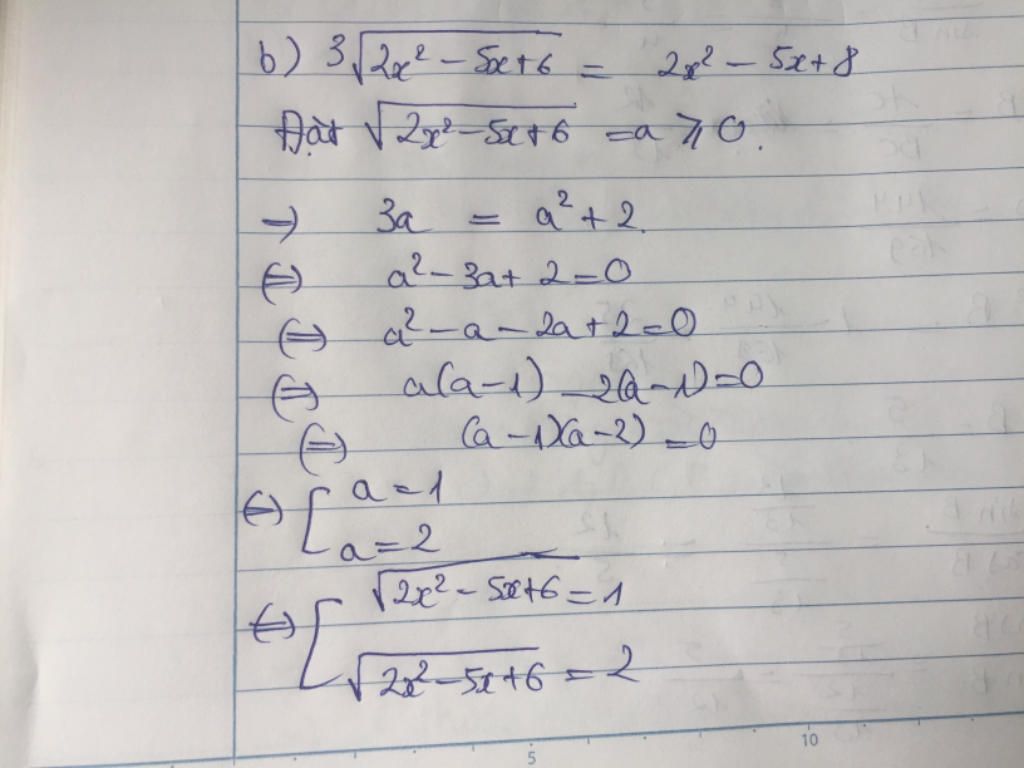 b) 3√(2x² - 5x + 6) = 2x² - 5x + 8
Đặt √(2x² - 5x + 6) = a ⩾ 0.
→ 3a = a² + 2.
⇔ a² - 3a + 2 = 0
⇔ a² - a - 2a + 2 = 0
⇔ a(a - 1) - 2(a - 1) = 0
⇔ (a - 1)(a - 2) = 0
⇔ [ a = 1
a = 2
⇔ [ √(2x² - 5x + 6) = 1
√(2x² - 5x + 6) = 2
5 10